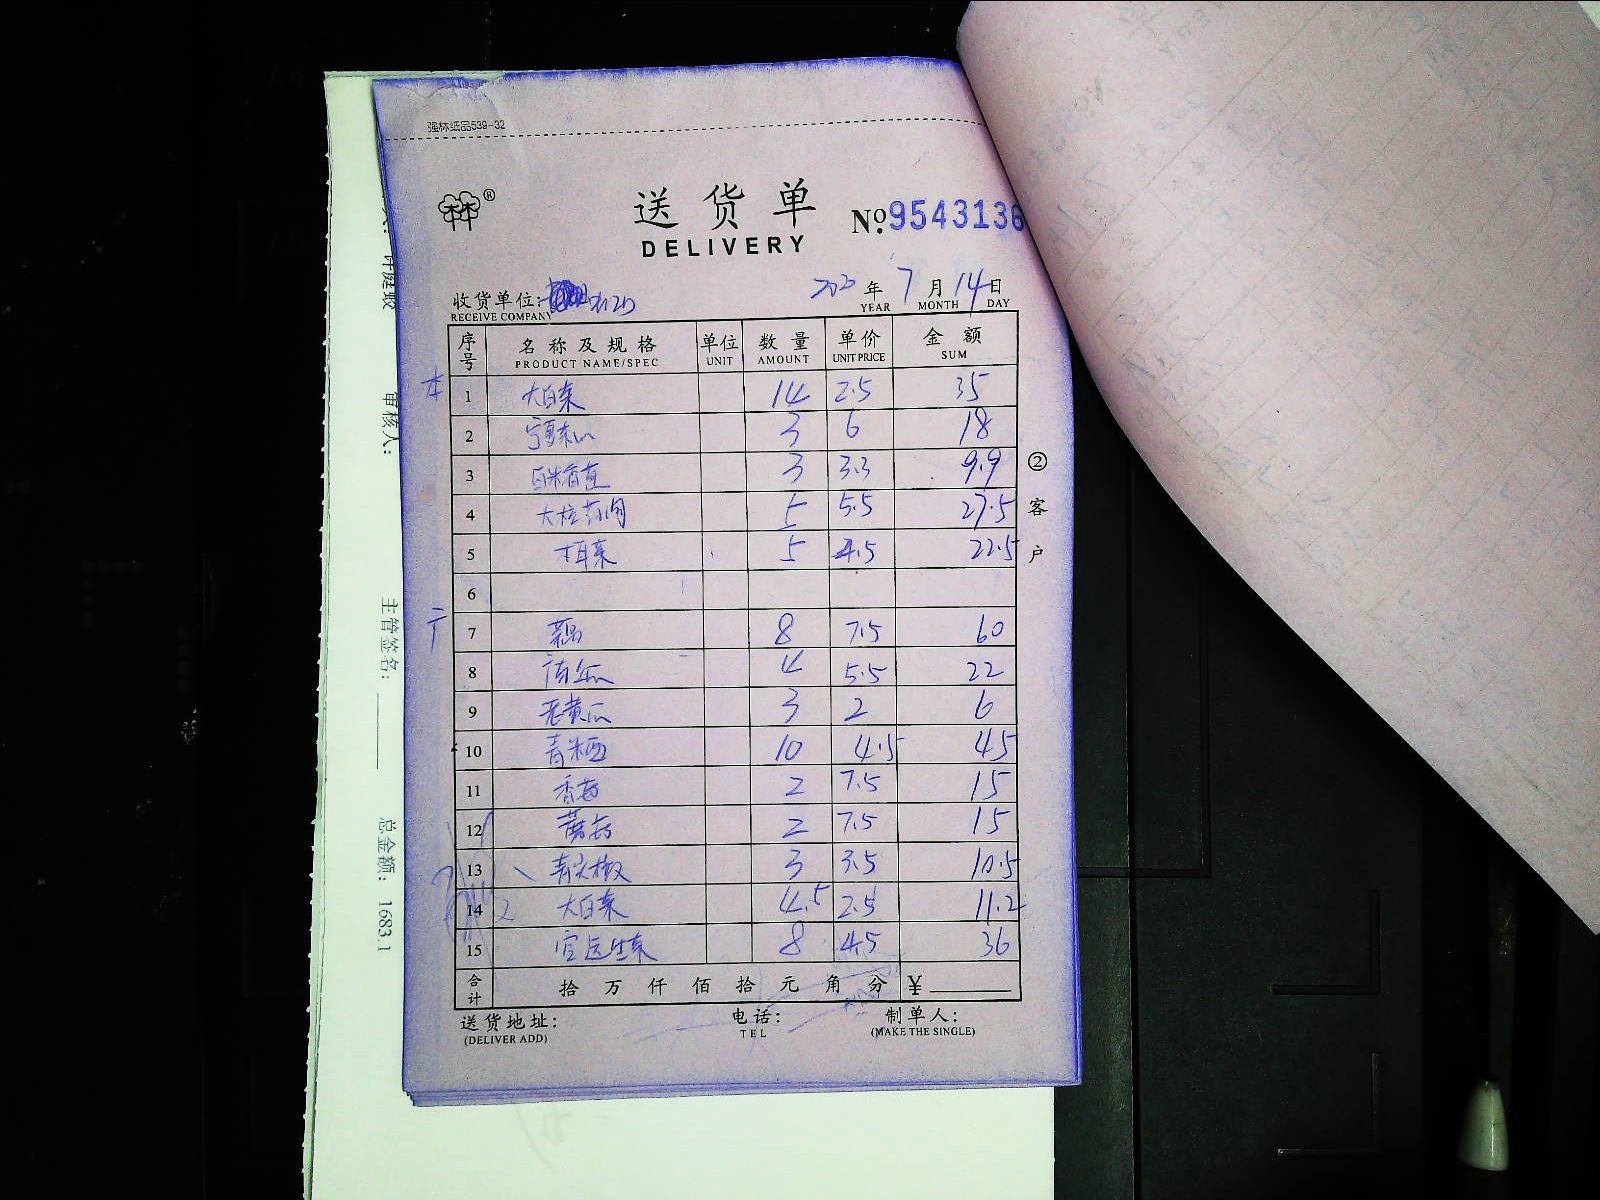 强林纸品539-32
林®
送货单
DELIVERY
№9543136
收货单位:
RECEIVE COMPANY
年 7 月 14 日
YEAR MONTH DAY
序号 名称及规格 单位 数量 单价 金额
PRODUCT NAME/SPEC UNIT AMOUNT UNIT PRICE SUM
1 大白菜 14 2.5 35
2 3 6 18
3 3 3.3 9.9
4 5 5.5 27.5
5 5 4.5 22.5
6
7 8 7.5 60
8 4 5.5 22
9 老黄瓜 3 2 6
10 10 4.5 45
11 香菇 2 7.5 15
12 蘑菇 2 7.5 15
13 青尖椒 3 3.5 10.5
14 大白菜 4.5 2.5 11.2
15 8 4.5 36
合计 拾 万 仟 佰 拾 元 角 分 ¥
送货地址: 电话: 制单人:
(DELIVER ADD) TEL (MAKE THE SINGLE)
② 客户
审核人:
主管签名:
总金额: 1683.1